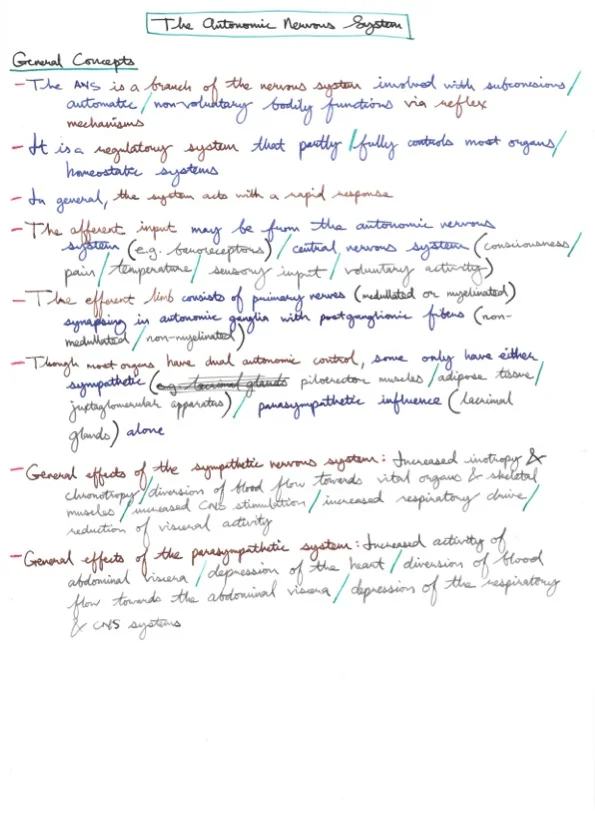 The Autonomic Nervous System
General Concepts
- The ANS is a branch of the nervous system involved with subconsious/
automatic/non-voluntary bodily functions via reflex
mechanisms
- It is a regulatory system that partly/fully controls most organs/
homeostatic systems
- In general, the system acts with a rapid response
- The afferent input may be from the autonomic nervous
system (e.g. baroreceptors)/central nervous system (consciousness/
pain/temperature/sensory input/voluntary activity)
- The efferent limb consists of primary nerves (medullated or myelinated)
synapsing in autonomic ganglia with postganglionic fibers (non-
medullated/non-myelinated)
- Though most organs have dual autonomic control, some only have either
sympathetic (e.g. lacrimal glands pilorector muscles/adipose tissue/
juxtaglomerular apparatus)/parasympathetic influence (lacrimal
glands) alone
- General effects of the sympathetic nervous system: Increased inotropy &
chronotropy/diversion of blood flow towards vital organs & skeletal
muscles/increased CNS stimulation/increased respiratory drive/
reduction of visceral activity
- General effects of the parasympathetic system: Increased activity of
abdominal viscera/depression of the heart/diversion of blood
flow towards the abdominal viscera/depression of the respiratory
& CNS systems